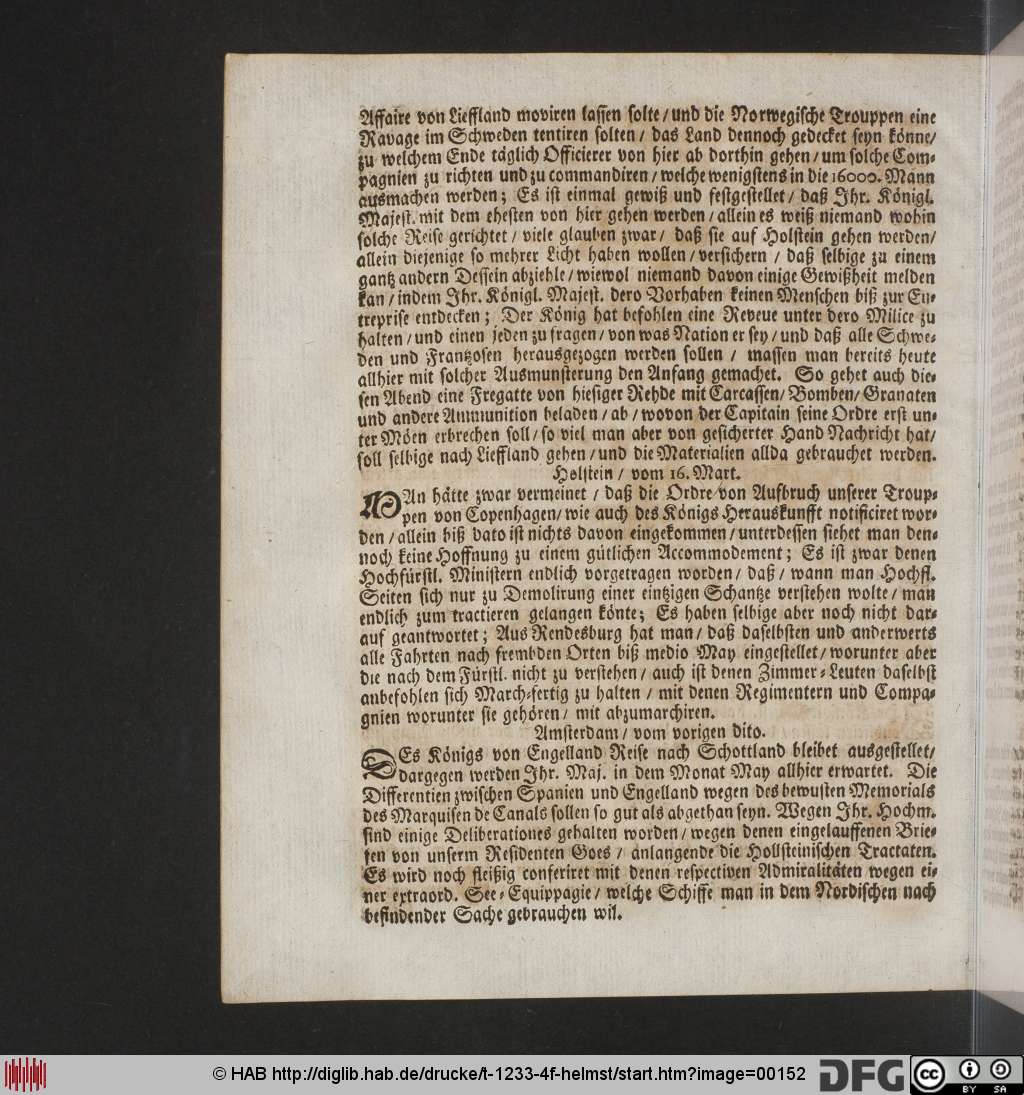 Affaire von Lieffland moviren lassen solte / und die Norwegische Trouppen eine
Ravage im Schweden tentiren solten / das Land dennoch gedecket seyn könne/
zu welchem Ende täglich Officierer von hier ab dorthin gehen / um solche Com-
pagnien zu richten und zu commandiren / welche wenigstens in die 16000. Mann
ausmachen werden; Es ist einmal gewiß und festgestellet / daß Ihr. Königl.
Majest. mit dem ehesten von hier gehen werden / allein es weiß niemand wohin
solche Reise gerichtet / viele glauben zwar / daß sie auf Holstein gehen werden/
allein diejenige so mehrer Licht haben wollen / versichern / daß selbige zu einem
gantz andern Dessein abziehle / wiewol niemand davon einige Gewißheit melden
kan / indem Ihr. Königl. Majest. dero Vorhaben keinen Menschen biß zur En-
treprise entdecken; Der König hat befohlen eine Reveue unter dero Milice zu
halten / und einen jeden zu fragen / von was Nation er sey / und daß alle Schwe-
den und Frantzosen herausgezogen werden sollen / massen man bereits heute
allhier mit solcher Ausmunsterung den Anfang gemachet. So gehet auch die-
sen Abend eine Fregatte von hiesiger Rehde mit Carcassen/ Bomben/ Granaten
und andere Ammunition beladen / ab / wovon der Capitain seine Ordre erst un-
ter Möen erbrechen soll / so viel man aber von gesicherter Hand Nachricht hat/
soll selbige nach Lieffland gehen / und die Materialien allda gebrauchet werden.
Holstein / vom 16. Mart.
MAn hätte zwar vermeinet / daß die Ordre von Aufbruch unserer Troup-
pen von Copenhagen / wie auch des Königs Herauskunfft notificiret wor-
den / allein biß dato ist nichts davon eingekommen / unterdessen siehet man den-
noch keine Hoffnung zu einem gütlichen Accommodement; Es ist zwar denen
Hochfürstl. Ministern endlich vorgetragen worden / daß / wann man Hochfl.
Seiten sich nur zu Demolirung einer eintzigen Schantze verstehen wolte / man
endlich zum tractieren gelangen könte; Es haben selbige aber noch nicht dar-
auf geantwortet; Aus Rendesburg hat man / daß daselbsten und anderwerts
alle Fahrten nach frembden Orten biß medio May eingestellet / worunter aber
die nach dem Fürstl. nicht zu verstehen / auch ist denen Zimmer-Leuten daselbst
anbefohlen sich March-fertig zu halten / mit denen Regimentern und Compa-
gnien worunter sie gehören / mit abzumarchiren.
Amsterdam / vom vorigen dito.
DEs Königs von Engelland Reise nach Schottland bleibet ausgestellet/
dargegen werden Ihr. Maj. in dem Monat May allhier erwartet. Die
Differentien zwischen Spanien und Engelland wegen des bewusten Memorials
des Marquisen de Canals sollen so gut als abgethan seyn. Wegen Ihr. Hochm.
sind einige Deliberationes gehalten worden / wegen denen eingelauffenen Brie-
fen von unserm Residenten Goes / anlangende die Hollsteinischen Tractaten.
Es wird noch fleißig conferiret mit denen respectiven Admiralitäten wegen ei-
ner extraord. See-Equippagie / welche Schiffe man in dem Nordischen nach
befindender Sache gebrauchen wil.
© HAB http://diglib.hab.de/drucke/t-1233-4f-helmst/start.htm?image=00152
DFG
cc BY SA